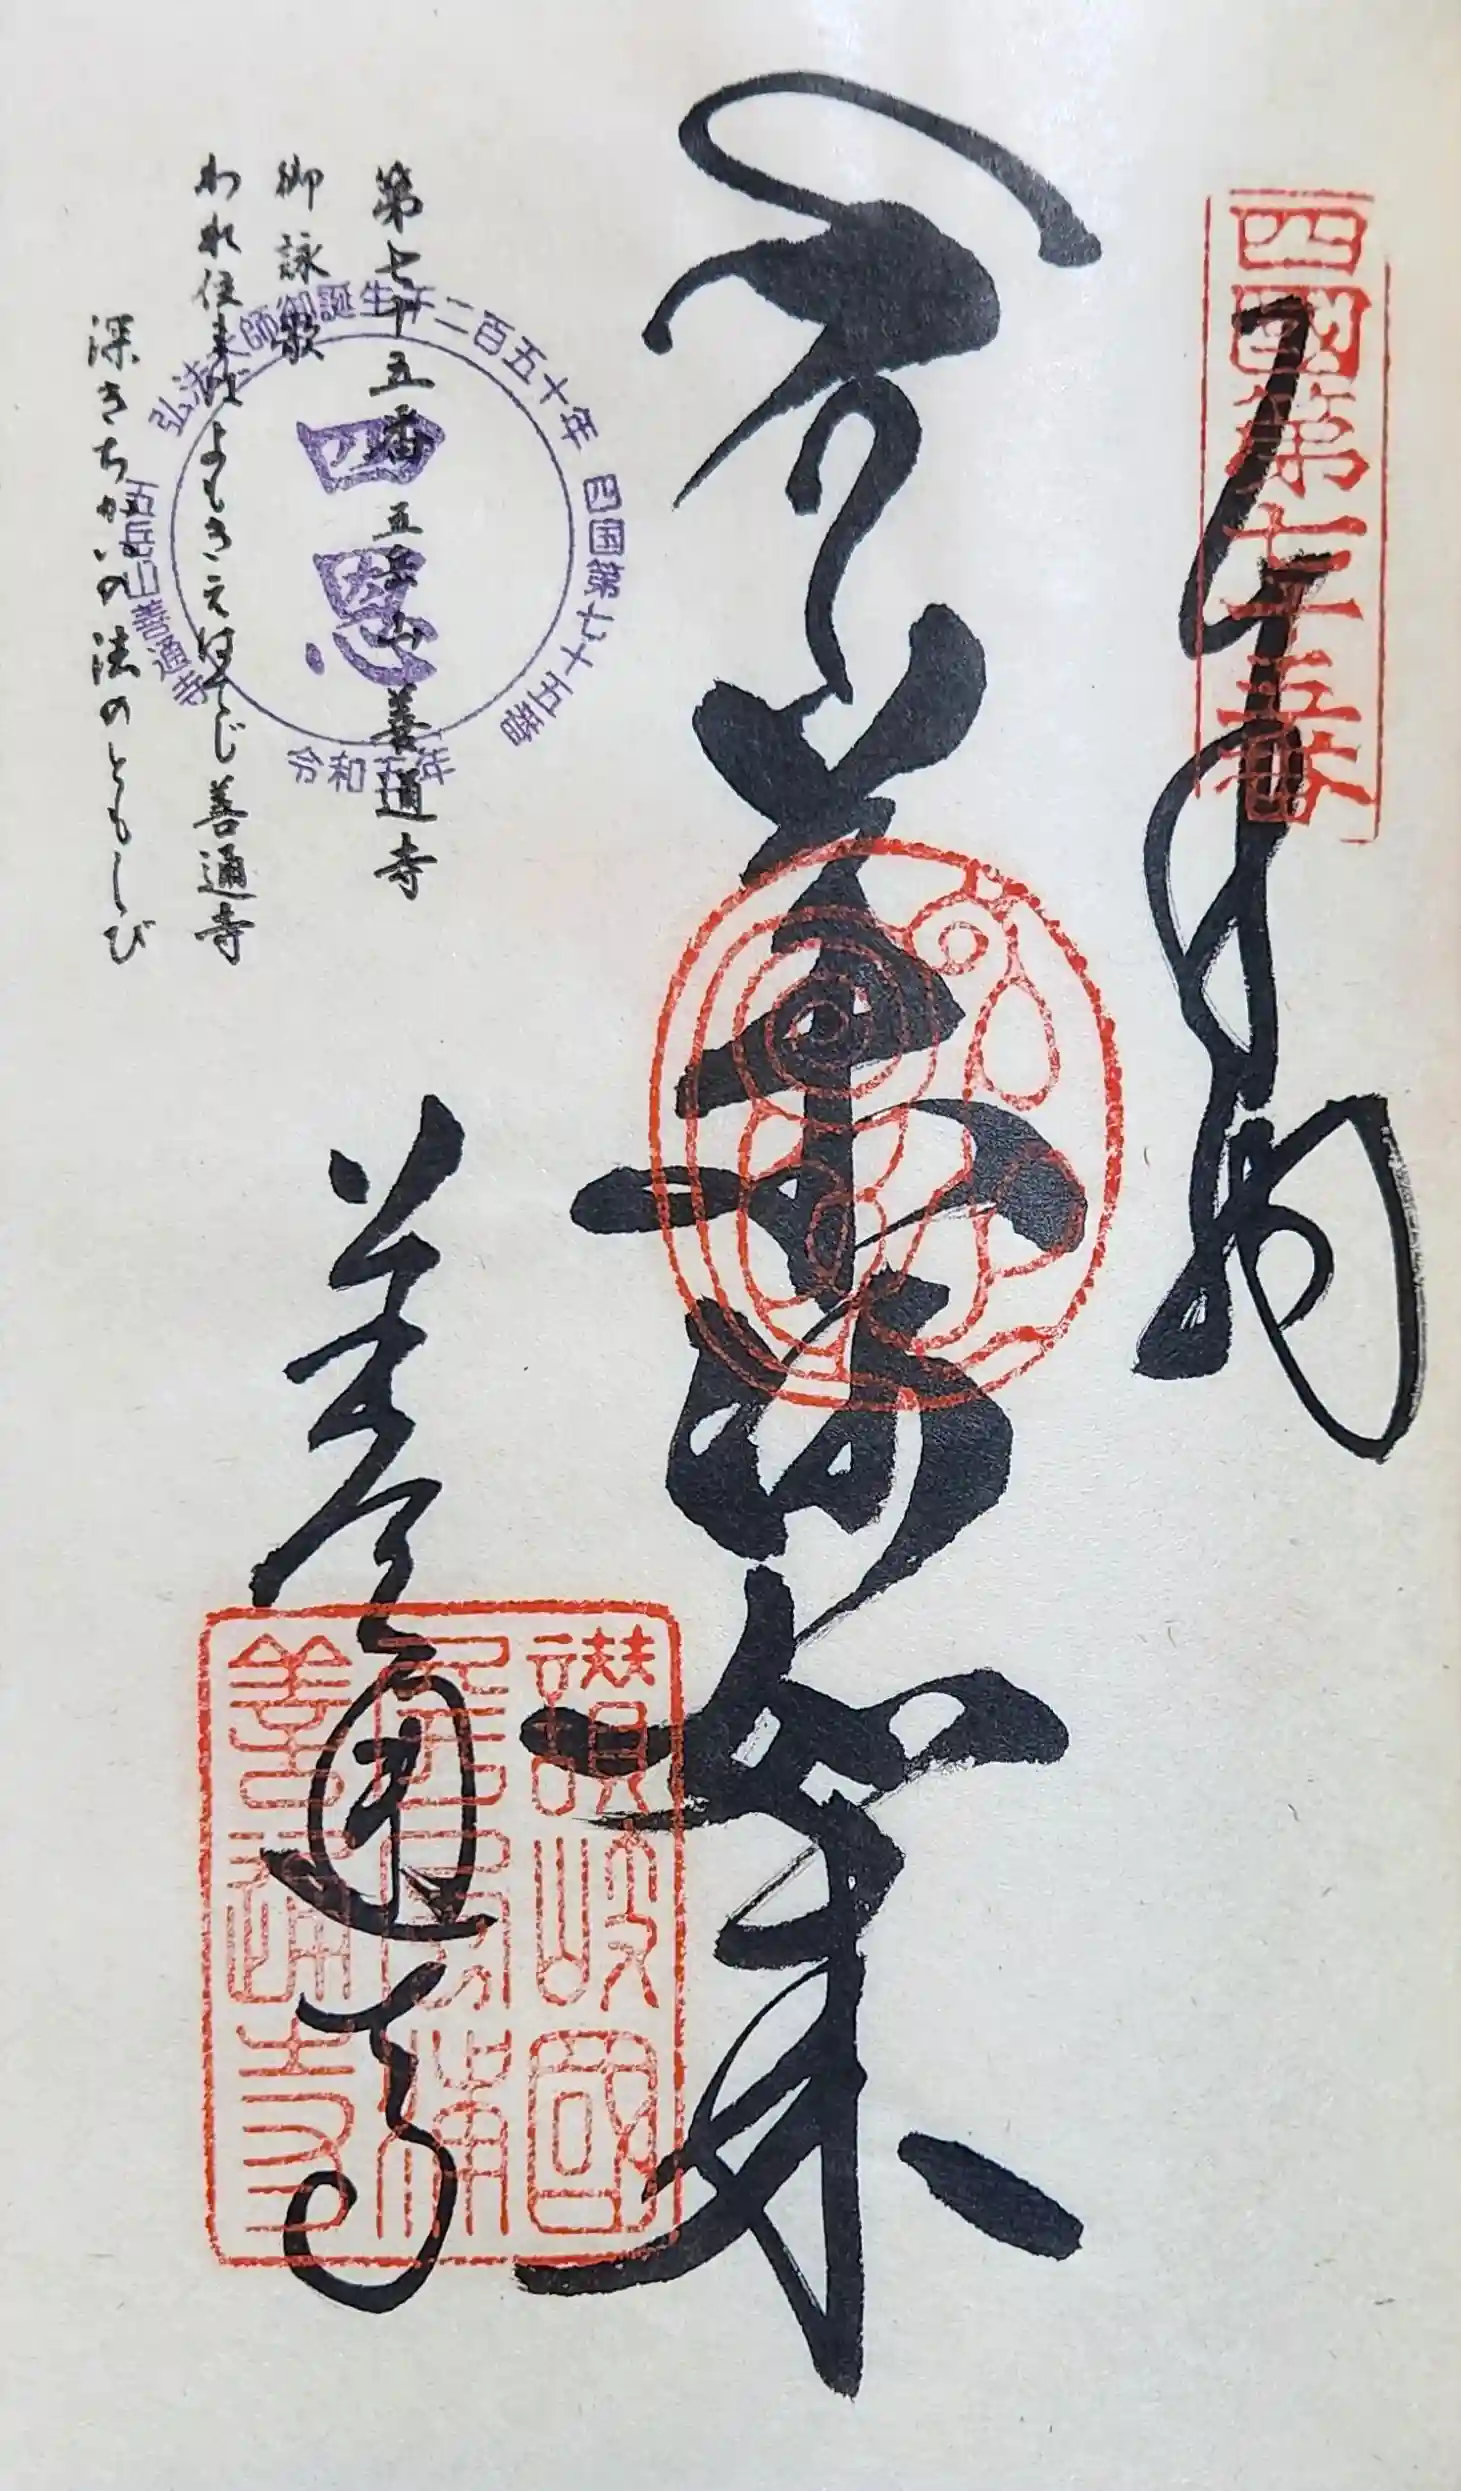 四國第七十五番
奉納
薬師如来
善通寺
讃岐國
善通寺
第七十五番 五岳山 善通寺
御詠歌
われ住まばよもきえはてじ善通寺
深きちかいの法のともしび
弘法大師御誕生千二百五十年
四国第七十五番
令和五年
五岳山善通寺
四恩